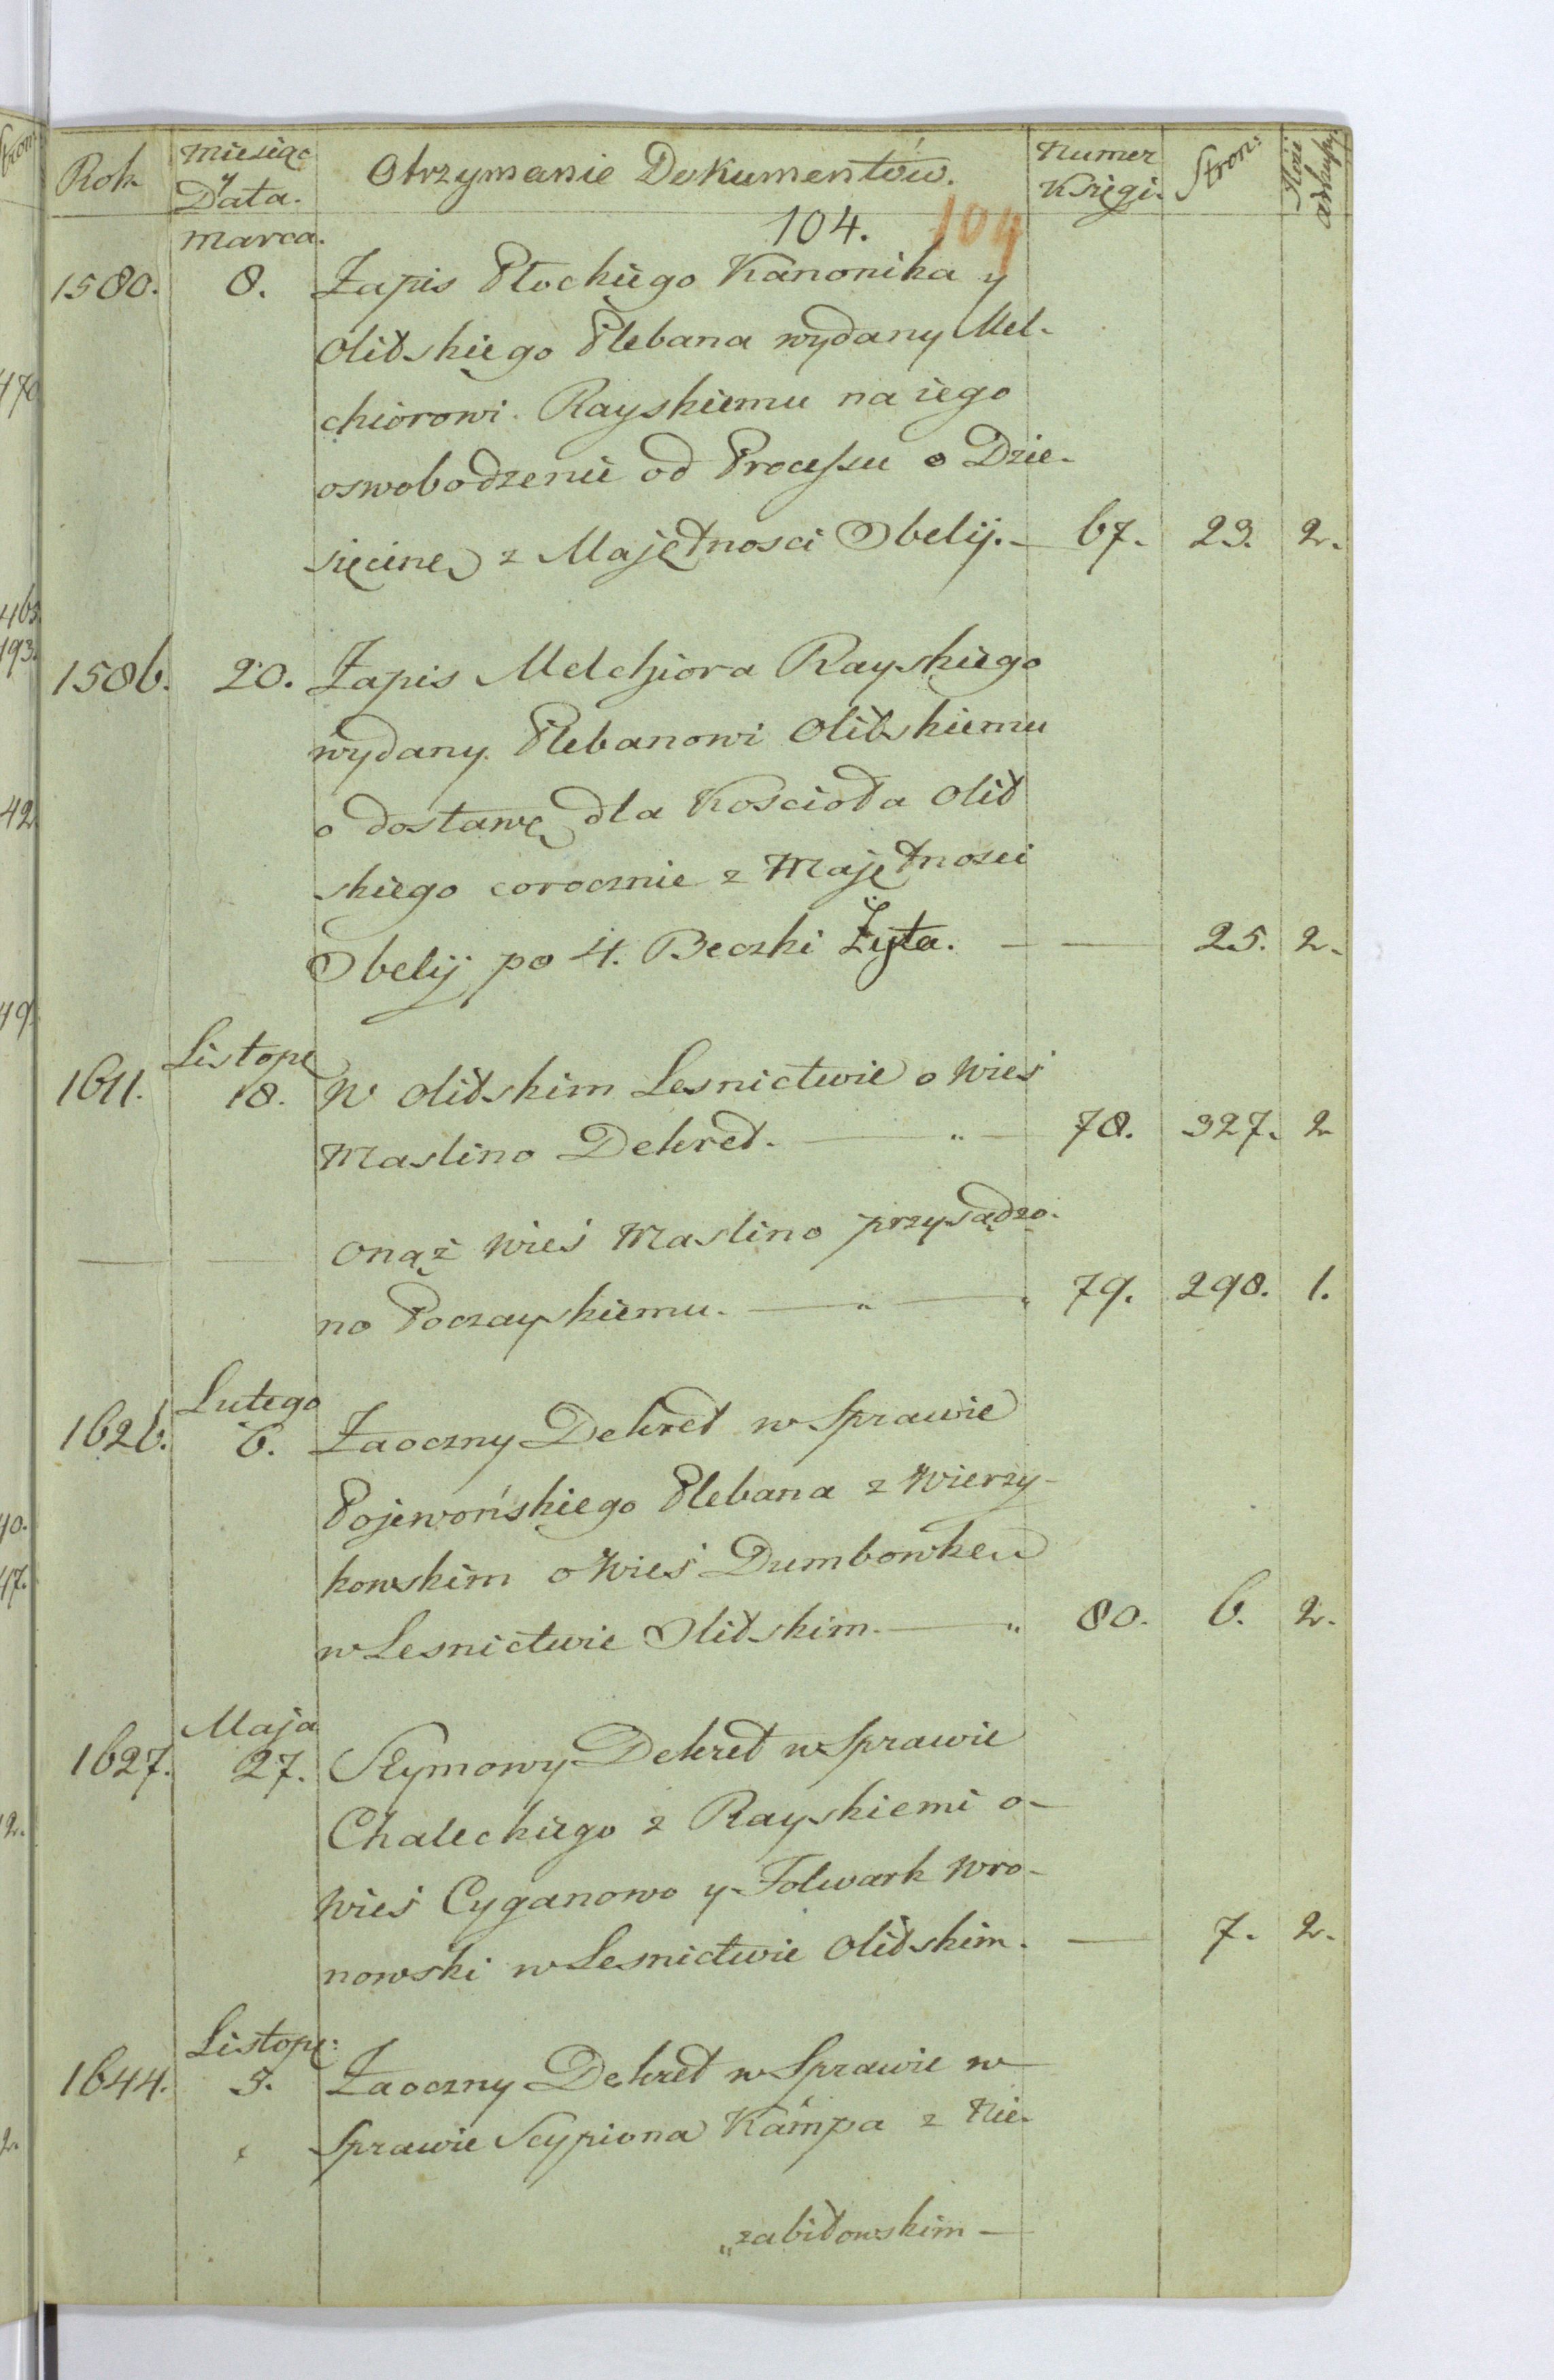 Rok Miesiąc y Data. Otrzymanie Dokumentów. Numer Księgi. Stron:
104. 104
Marca.
1580. 8. Zapis Płockiego Kanonika y
Olitskiego Plebana wydany Mel-
chiorowi Rayskiemu na iego
oswobodzenie od Processu o Dzie-
sięcinę z Majętnosci Obelij. 67. 23. 2.
1586. 20. Zapis Melchiora Rayskiego
wydany Plebanowi Olitskiemu
o dostawę dla Kościoła Olit
skiego corocznie z Majętnosci
Obelij po 4. Beczki Żyta. — 25. 2.
Listop
1611. 18. W Olitskim Lesnictwie o Wieś
Maslino Dekret. — 78. 327. 2
— — Onąż Wieś Maslino przysądzo-
no Poczayskiemu. — 79. 298. 1.
Lutego
1626. 6. Zaoczny Dekret w Sprawie
Pojewońskiego Plebana z Wierzy-
kowskim o Wieś Dumbowken
w Lesnictwie Olitskim. — 80. 6. 2.
Maja
1627. 27. Seymowy Dekret w Sprawie
Chaleckiego z Rayskiemi o-
Wieś Cyganowo y Folwark Wro-
nowski w Lesnictwie Olitskim. — 7. 2.
Listop:
1644. 5. Zaoczny Dekret w Sprawie w
Sprawie Scypiona Kampa z Nie-
„zabitowskim —